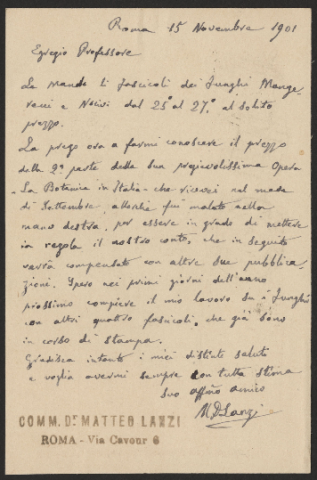 Roma 15 Novembre 1901
Egregio Professore
Le mando li fascicoli dei Funghi Mange-
recci e Nocivi dal 25° al 27° al solito
prezzo.
La prego ora a farmi conoscere il prezzo
della 2ª parte della Sua pregevolissima Opera
"La Botanica in Italia" che ricevei nel mese
di Settembre, allorchè fui malato nella
mano destra, per essere in grado di mettere
in regola il nostro conto, che in seguito
verrà compensato con altre due pubblica-
zioni. Spero nei primi giorni dell'anno
prossimo compiere il mio lavoro su i Funghi
con altri quattro fascicoli, che già sono
in corso di stampa.
Gradisca intanto i miei distinti saluti
e voglia avermi sempre con tutta stima
Suo affmo amico
M. Lanzi
COMM. Dr MATTEO LANZI
ROMA - Via Cavour 6